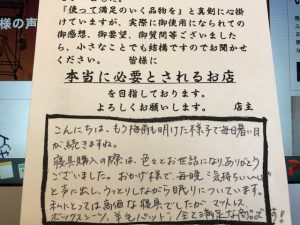 様の声
『使って満足のいく品物を』と真剣に心掛
けていますが、実際に御使用になられての
御感想、御要望、御質問等ございました
ら、小さなことでも結構ですのでお聞かせ
ください。 皆様に
本当に必要とされるお店
を目指しております。
よろしくお願いします。 店主
こんにちは。もう梅雨も明けた様子で毎日暑い日
が続きますね。
寝具購入の際は、色々とお世話になりありがとう
ございました。おかげ様で、毎晩「気持ちいい〜」
と声に出し、うっとりしながら眠りについています。
私にとっては高価な寝具でしたが、マットレス、
ボックスシーツ、羊毛パット、全て満足な商品です!